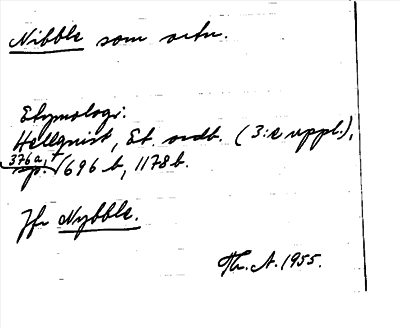 Nibble som ortn.
Etymologi:
Hellquist, Et. ordb. (3:e uppl.),
sp. 376a, 696 b, 1178 b.
Jfr Nybble.
Th. A. 1955.